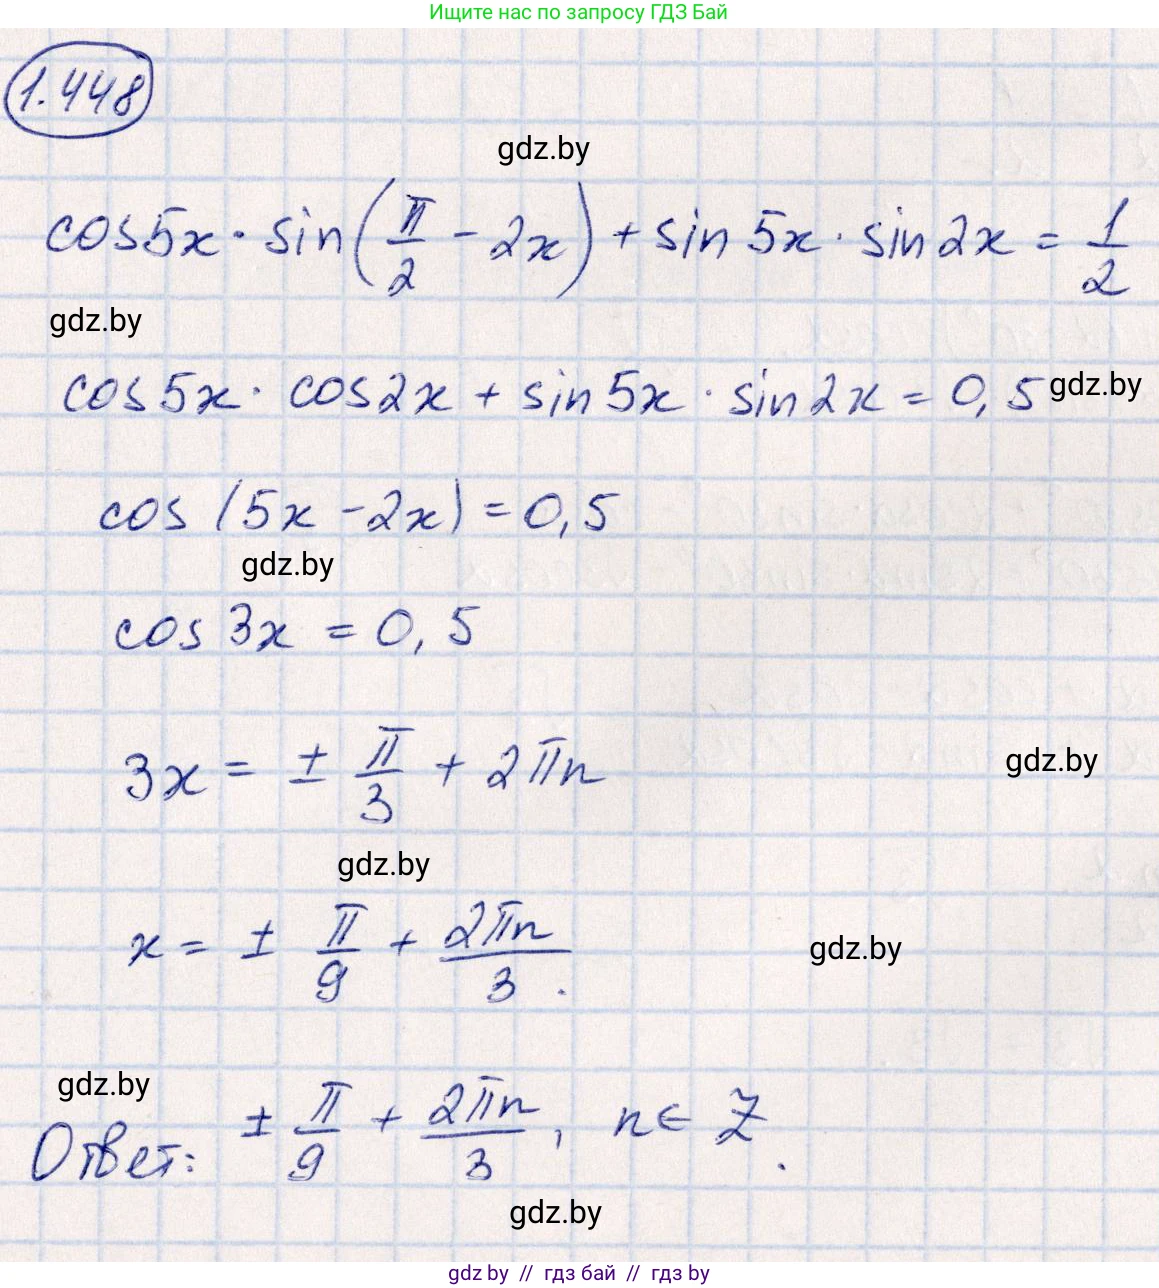 Ищите нас по запросу ГДЗ Бай
1.448
gdz.by
cos5x · sin(π/2 - 2x) + sin 5x · sin 2x = 1/2
gdz.by
cos5x · cos2x + sin 5x · sin 2x = 0,5 gdz.by
cos (5x - 2x) = 0,5
gdz.by
cos 3x = 0,5
3x = ± π/3 + 2πn gdz.by
gdz.by
x = ± π/9 + 2πn/3. gdz.by
gdz.by
Ответ: ± π/9 + 2πn/3, n ∈ Z.
gdz.by
gdz by // гдз бай // гдз by